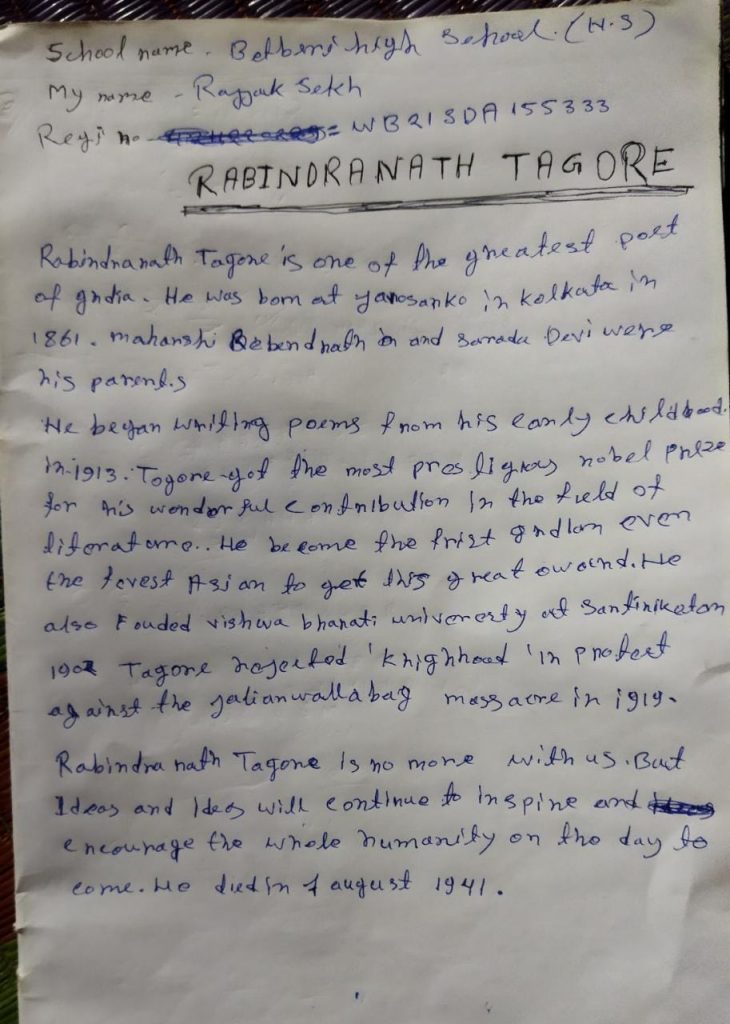 School name - Betberi high School. (H.S)
My name - Rajjak Sekh
Regi no = WB213DA155333
RABINDRANATH TAGORE
Rabindranath Tagore is one of the greatest poet
of India. He was born at yarosanko in kolkata in
1861. maharshi Debendnath and Sarada Devi were
his parents
He began writing poems from his early childhood.
in 1913. Togore got the most prestigious nobel prize
for his wonderful contribution in the field of
literature.. He become the frist Indian even
the forest Asian to get this great oword. He
also Fouded vishwa bharati universty at Santiniketon
Tagore rejected 'knighhood' in protest
against the jalianwallabag massacre in 1919.
Rabindra nath Tagore is no more with us. But
Ideas and Ideas will continue to inspire and
encourage the whole humanity on the day to
come. He died in 7 august 1941.